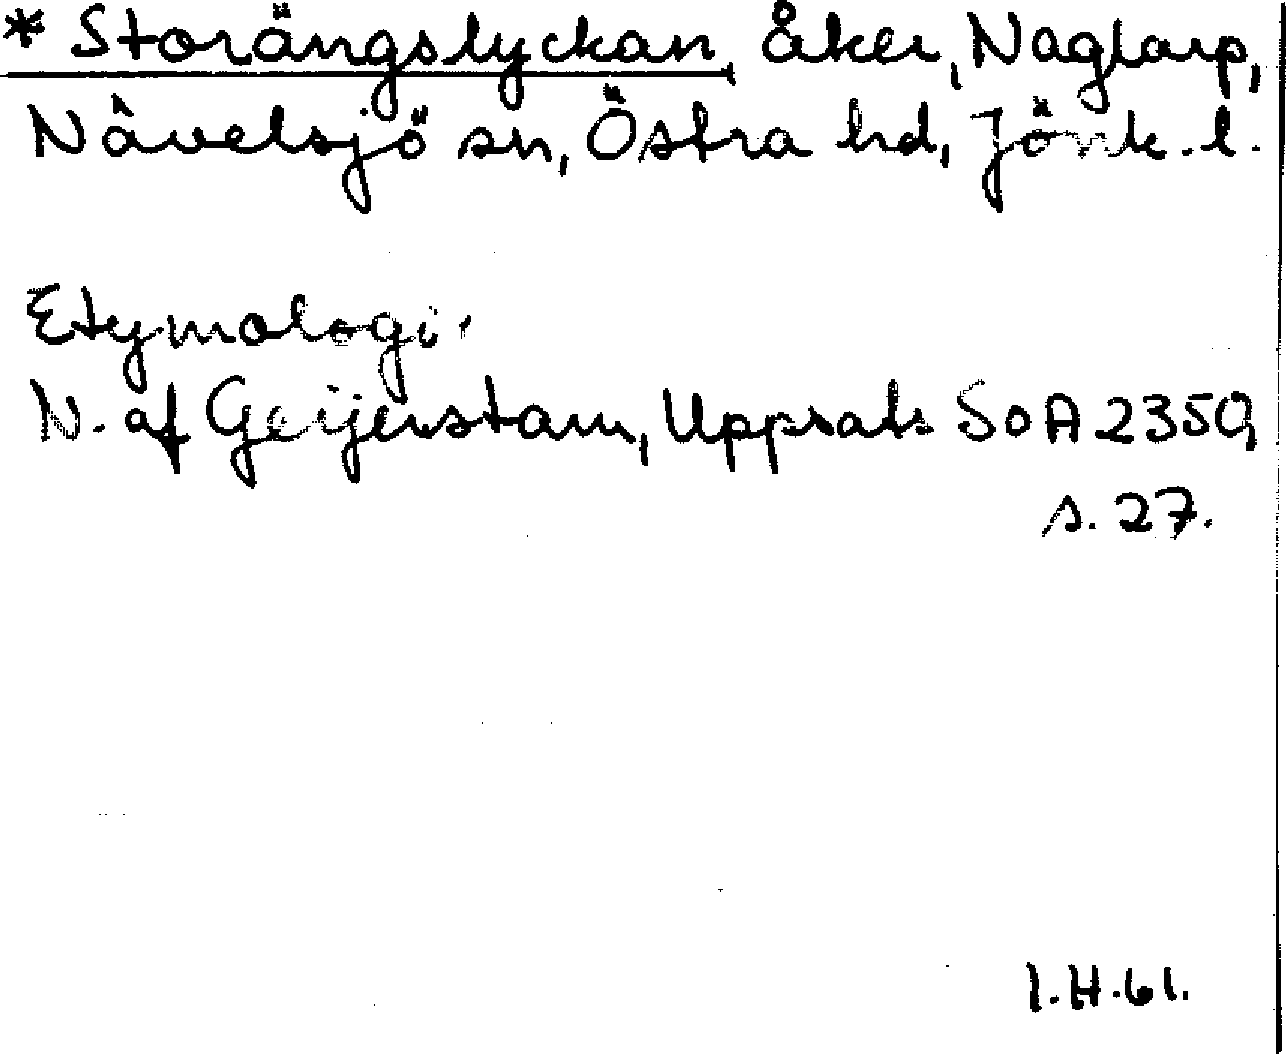 * Storängslyckan, åker, Naglarp,
Nävelsjö sn, Östra hd, Jönk. l.
Etymologi.
N. af Geijerstam, Uppsats SOA 2359,
s. 27.
I.H.61.